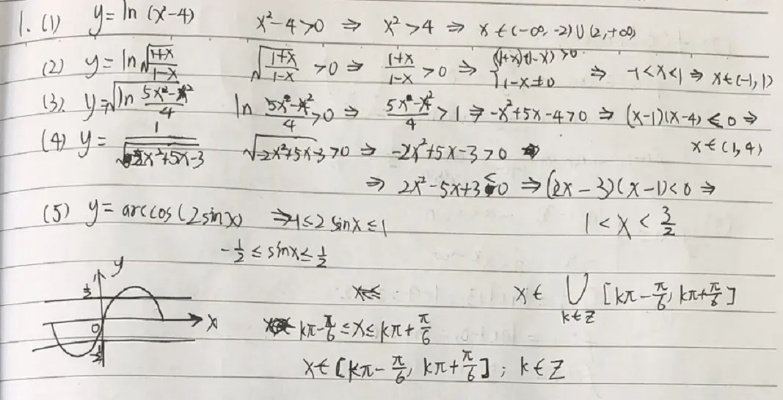 1. (1) y = ln (x²-4) x²-4>0 ⇒ x²>4 ⇒ x∈(-∞,-2)∪(2,+∞)
(2) y = ln√((1+x)/(1-x)) √((1+x)/(1-x)) >0 ⇒ (1+x)/(1-x) >0 ⇒ { (1+x)(1-x)>0 1-x≠0 ⇒ -1<x<1 ⇒ x∈(-1,1)
(3) y=√(ln (5x-x²)/4) ln (5x-x²)/4 >0 ⇒ (5x-x²)/4 >1 ⇒ -x²+5x-4>0 ⇒ (x-1)(x-4)<0 ⇒
x∈(1,4)
(4) y = 1/√(-2x²+5x-3) √(-2x²+5x-3)>0 ⇒ -2x²+5x-3>0
⇒ 2x²-5x+3<0 ⇒ (2x-3)(x-1)<0 ⇒
1<x<3/2
(5) y = arccos(2sinx) ⇒ -1≤2sinx≤1
-1/2 ≤ sinx ≤ 1/2
y
1/2
0
x
kπ-π/6 ≤x≤ kπ+π/6
x∈ ∪ k∈Z [kπ-π/6, kπ+π/6]
x∈[kπ-π/6, kπ+π/6]; k∈Z